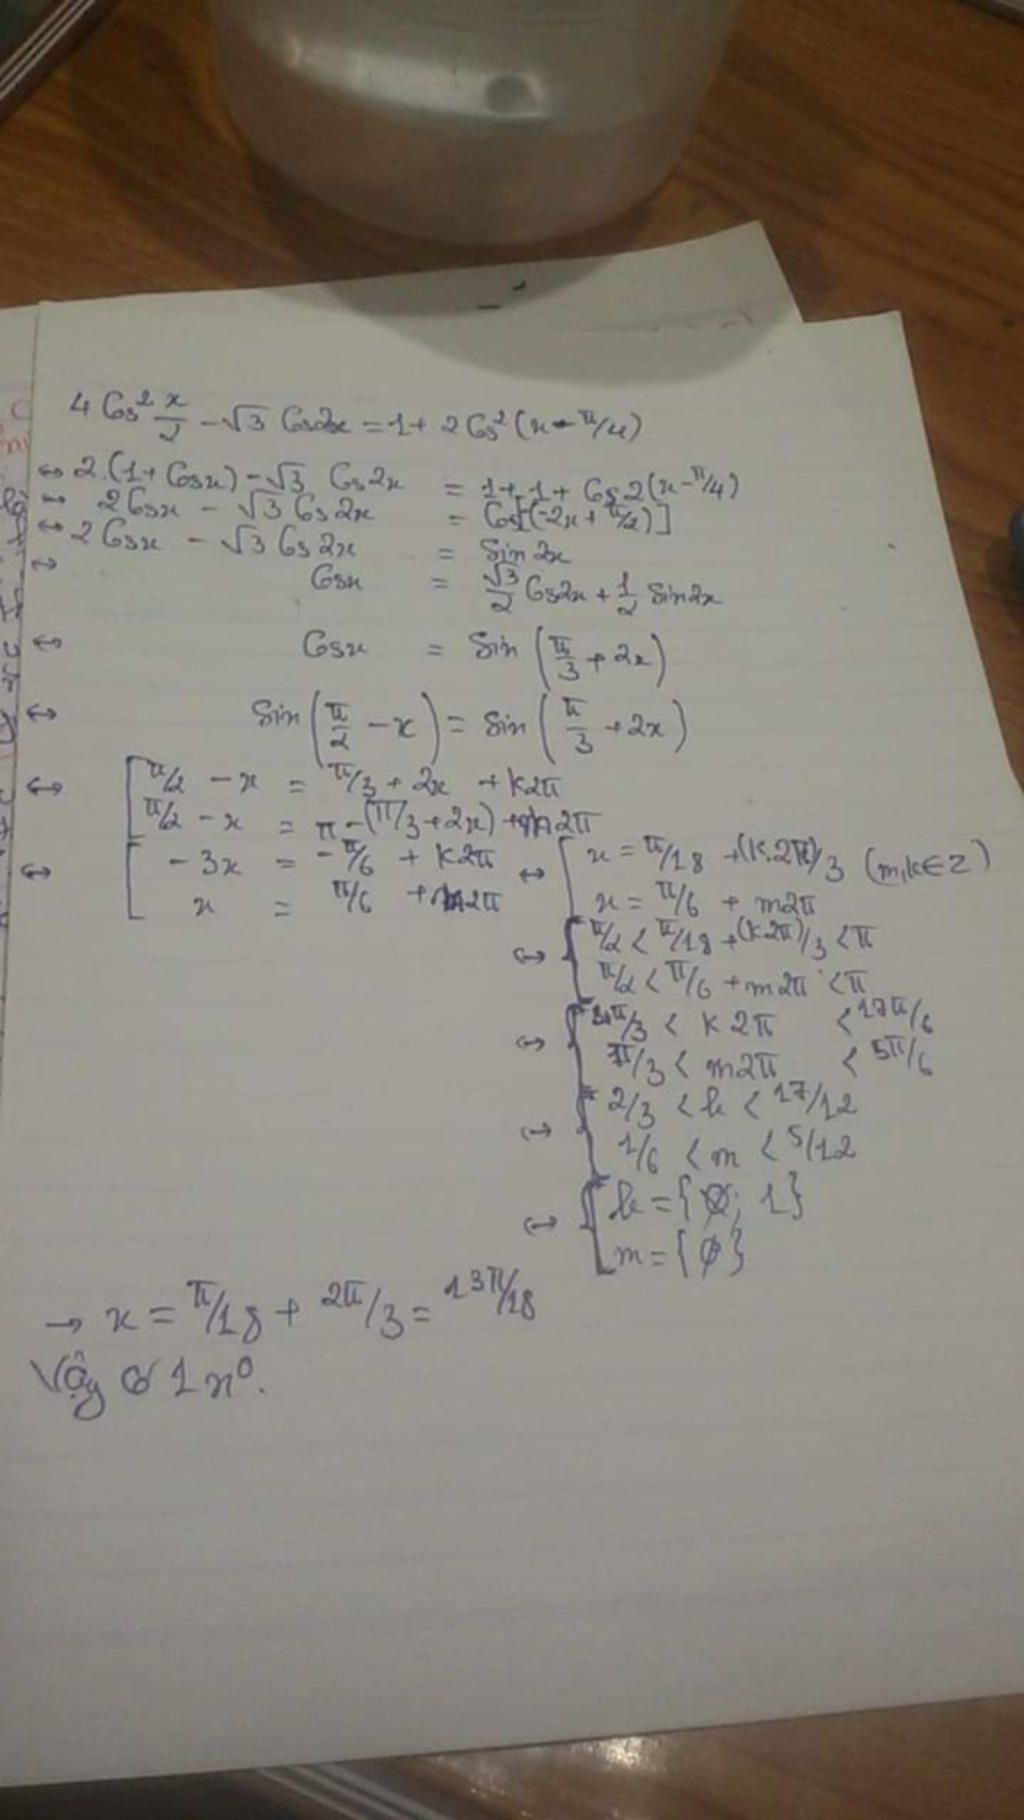 4 Cos² x/2 - √3 Cos2x = 1 + 2 Cos² (x - π/4)
↔ 2.(1 + Cosx) - √3 Cos2x = 1 + 1 + Cos2(x - π/4)
↔ 2Cosx - √3 Cos2x = Cos[-(-2x + π/2)]
↔ 2Cosx - √3 Cos2x = Sin2x
↔ Cosx = √3/2 Cos2x + 1/2 Sin2x
↔ Cosx = Sin (π/3 + 2x)
↔ Sin (π/2 - x) = Sin (π/3 + 2x)
↔ [ π/2 - x = π/3 + 2x + k2π
π/2 - x = π - (π/3 + 2x) + m2π
↔ [ -3x = -π/6 + k2π ↔ [ x = π/18 + (k.2π)/3 (m,k∈Z)
x = π/6 + m2π x = π/6 + m2π
↔ { π/2 < π/18 + (k2π)/3 < π
π/2 < π/6 + m2π < π
↔ { π/3 < k2π < 17π/6
π/3 < m2π < 5π/6
↔ { 2/3 < k < 17/12
1/6 < m < 5/12
↔ { k = { 1}
m = {∅}
→ x = π/18 + 2π/3 = 13π/18
Vậy có 1 n⁰.